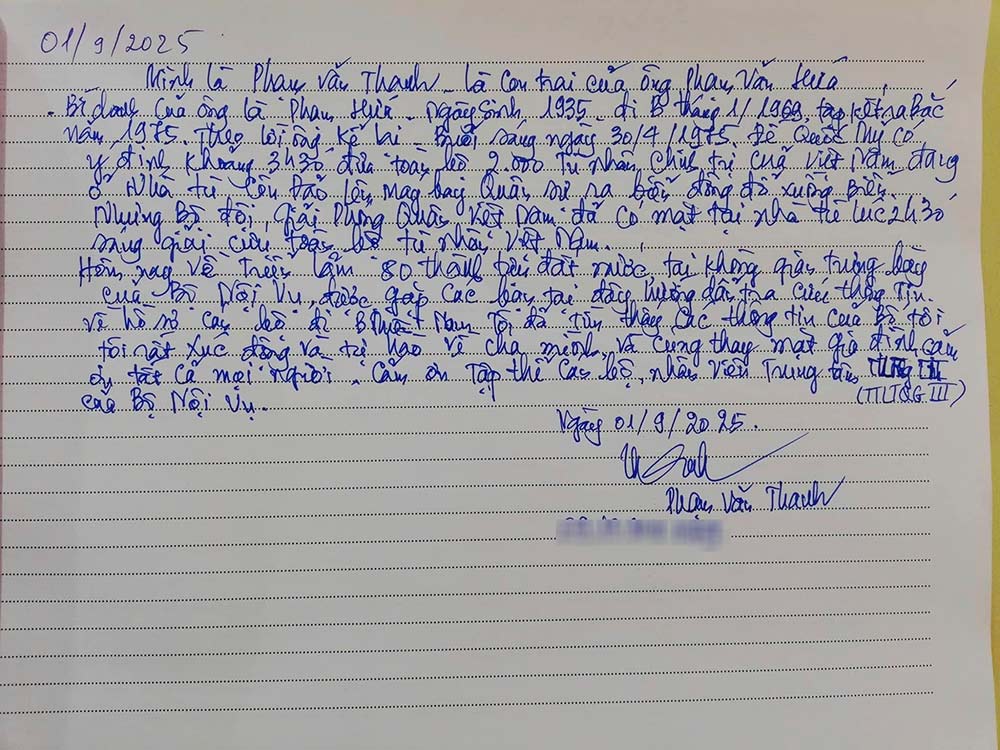 01/9/2025
Mình là Phạm Văn Thanh - là con trai của ông Phạm Văn Huá
- Bí danh của ông là Phạm Huá. Ngày sinh 1935. đi B tháng 1/1969, tập kết ra Bắc
năm 1975. Theo lời ông kể lại - Buổi sáng ngày 30/4/1975. Đế Quốc Mỹ có
ý định khoảng 3h30 đưa toàn bộ 2.000 tù nhân chính trị của Việt Nam đang
ở Nhà tù Côn Đảo lên máy bay Quân sự ra biển đông đổ xuống Biển.
Nhưng Bộ đội, giải Phóng Quân Việt Nam đã có mặt tại nhà tù lúc 2h30
sáng giải cứu toàn bộ tù nhân Việt Nam.
Hôm nay về triển lãm 80 thành tựu đất nước, tại không gian trưng bày
của Bộ Nội Vụ, được gặp các bạn tại đây hướng dẫn tra cứu thông tin
về hồ sơ cán bộ đi B Nam Tôi đã tìm thấy các thông tin của Bố tôi
tôi rất xúc động và tự hào về cha mình. và cũng thay mặt gia đình cảm
ơn tất cả mọi người. Cảm ơn Tập thể cán bộ, nhân viên Trung tâm
(TTLTQG III)
của Bộ Nội Vụ.
Ngày 01/9/2025.
Phạm Văn Thanh